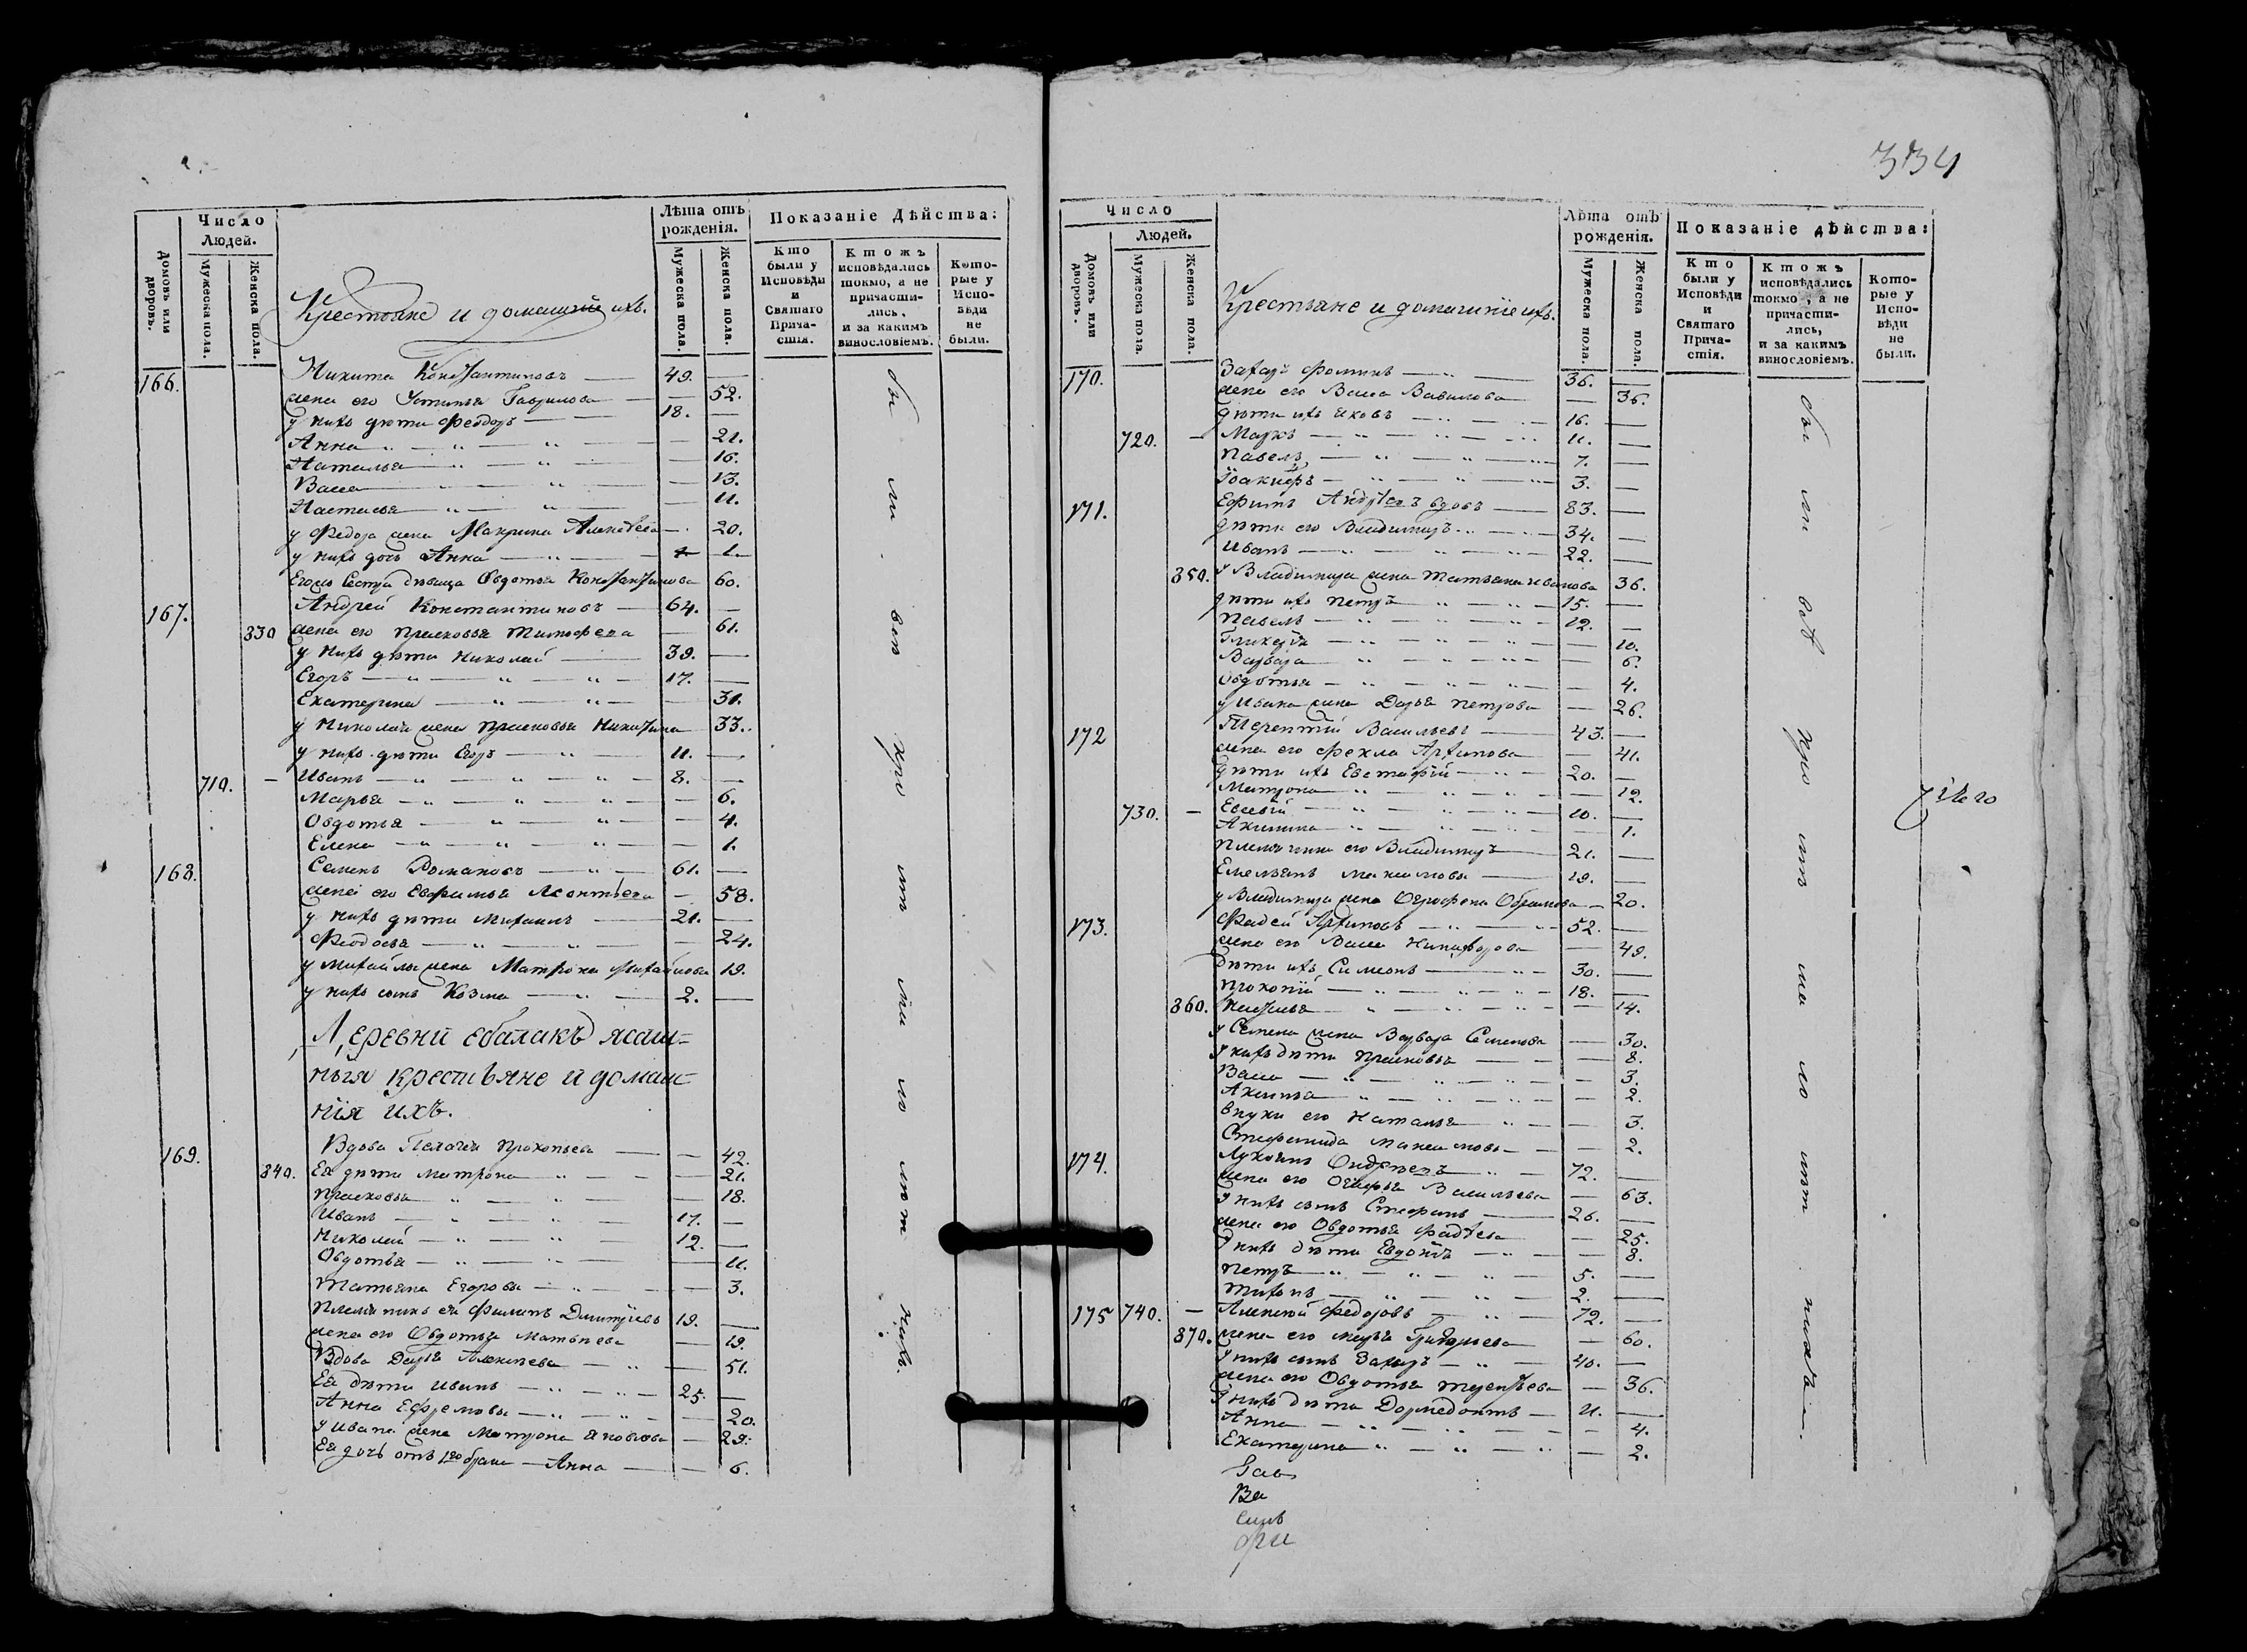 334
Число Людей.
Домовъ или дворовъ.
Мужеска пола.
Женска пола.
Крестьяне и домашніе ихъ.
Лѣта отъ рожденія.
Мужеска пола.
Женска пола.
Показаніе Дѣйства:
Кто были у Исповѣди и Святаго Причастія.
Ктожъ исповѣдались токмо, а не причастились, и за какимъ винословіемъ.
Которые у Исповѣди не были.
166. Никита Константиновъ — 49. —
жена его Устинья Гаврилова — — 52.
у нихъ дѣти Феодоръ — 18. —
Анна — — 21.
Наталья — — 16.
Васса — — 13.
Настасья — — 11.
у Федора жена Макрина Алексѣева — 20.
у нихъ дочь Анна — — 1.
Егожъ Сестра дѣвица Овдотья Константинова 60.
167. Андрей Константиновъ — 64. —
830 жена его Прасковья Тимофеева — 61.
у нихъ дѣти Николай — 39. —
Егоръ — 17. —
Екатерина — — 31.
у Николая жена Прасковья Никитина 33.
у нихъ дѣти Егоръ — 11. —
710. — Иванъ — 8. —
Марья — — 6.
Овдотья — — 4.
Елена — — 1.
168. Семенъ Романовъ — 61. —
жена его Евфимья Леонтьева — 58.
у нихъ дѣти Михаилъ — 21. —
Феодосья — — 24.
у Михайлы жена Матрона Михайлова 19.
у нихъ сынъ Козма — 2. —
Деревни Ебалакъ ясаш-
ныя крестьяне и домаш-
нія ихъ.
169. Вдова Пелагея Прокопьева — — 42.
840. Ея дѣти Матрона — — 21.
Прасковья — — 18.
Иванъ — 17. —
Николай — 12. —
Овдотья — — 11.
Татьяна Егоровы — — 3.
Племянникъ ея Филипъ Дмитріевъ 19. —
жена его Овдотья Матвѣева — 19.
Вдова Дарья Алексѣева — — 51.
Ея дѣти Иванъ — 25. —
Анна Ефремовы — — 20.
у Ивана жена Матрона Яковлева — 29.
Ея дочь отъ 1го брака — Анна — — 6.
бы ли во вси при ит ми но
Число Людей.
Домовъ или дворовъ.
Мужеска пола.
Женска пола.
Крестьяне и домашніе ихъ.
Лѣта отъ рожденія.
Мужеска пола.
Женска пола.
Показаніе дѣйства:
Кто были у Исповѣди и Святаго Причастія.
Ктожъ исповѣдались токмо, а не причастились, и за какимъ винословіемъ.
Которые у Исповѣди не были.
170. Захаръ Фоминъ — 36. —
жена его Васса Вавилова — — 36.
дѣти ихъ Яковъ — 16. —
720. — Марко — 11. —
Павелъ — 7. —
Іоакифъ — 3. —
171. Ефимъ Андреевъ вдовъ — 83. —
дѣти его Владимиръ — 34. —
Иванъ — 22. —
850. у Владимира жена Татьяна Иванова 36.
дѣти ихъ Петръ — 15. —
Павелъ — 12. —
Гликерія — — 10.
Варвара — — 6.
Овдотья — — 4.
у Ивана жена Дарья Петрова — 26.
172 Терентій Васильевъ — 43. —
жена его Фекла Архипова — 41.
дѣти ихъ Евстафій — 20. —
Матрона — — 12.
730. — Евсевій — 10. —
Акилина — — 1.
Племянники его Владимиръ — 21. —
Емельянъ Максимовы — 19. —
у Владимира жена Огрофена Обрамова — 20.
173. Фадей Архиповъ — 52. —
жена его Васса Никифорова — 49.
дѣти ихъ Симеонъ — 30. —
Прокопій — 18. —
860. Настасья — — 14.
у Семена жена Варвара Семенова — 30.
у нихъ дѣти Прасковья — — 8.
Васса — — 3.
Аксинья — — 2.
внуки его Наталья — — 3.
Степанида Максимовы — — 2.
174. Лукьянъ Ондреевъ — 72. —
жена его Огафья Васильева — 63.
у нихъ сынъ Стефанъ — 26. —
жена его Овдотья Фадѣева — 25.
у нихъ дѣти Евдокія — — 8.
Петръ — 5. —
Тихонъ — 2. —
175 740. — Алексей Федоровъ — 72. —
870. жена его Марья Григорьева — 60.
у нихъ сынъ Захаръ — 40. —
жена его Овдотья Терентьева — 36.
у нихъ дѣти Дормедонтъ — 11. —
Анна — — 4.
Екатерина — — 2.